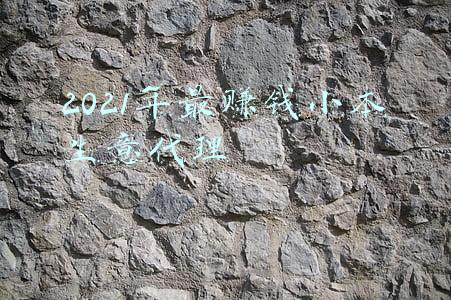 2021年最赚钱小本
生意代理